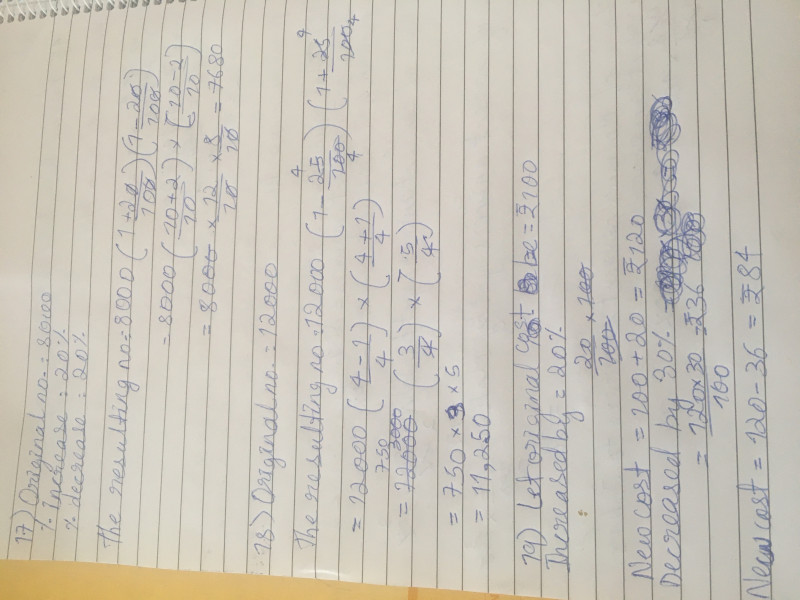 17) Original no. : 8000
% Increase : 20%
% decrease : 20%
The resulting no = 8000 (1+20/100) (1-20/100)
= 8000 (10+2/10) × (10-2/10)
= 8000 × 12/10 × 8/10 = 7680
18) Original no. : 12000
The resulting no = 12000 (1-25/100) (1+25/100)
= 12000 (4-1/4) × (4+1/4)
= 12000 (3/4) × (5/4)
= 750 × 3 × 5
= 11,250
19) Let original cost be = ₹100
Increased by = 20%
20/100 × 100
New cost = 100 + 20 = ₹120
Decreased by 30%
= 120×30/100 = ₹36
New cost = 120 - 36 = ₹84